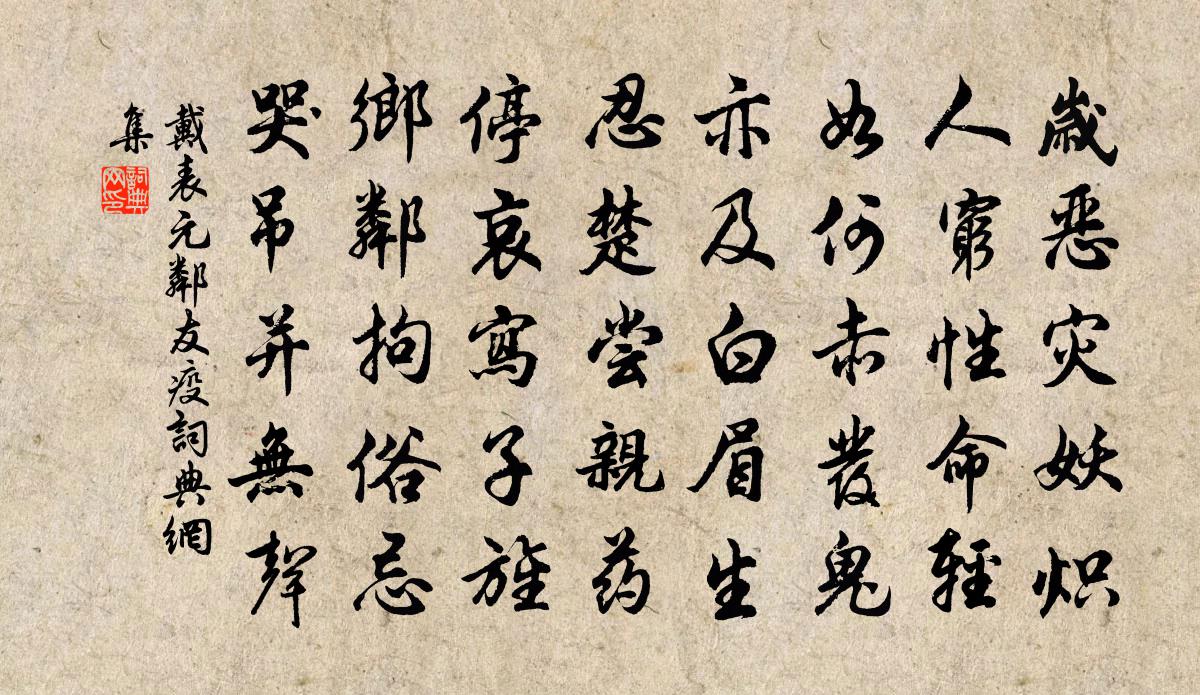 歲惡灾妖炽
人窮性命輕
如何赤發鬼
亦及白眉生
忍楚尝親药
停哀寫子旌
鄉鄰拘俗忌
哭吊并無聲
戴表元鄰友疫詞典網
集
詞典
网印